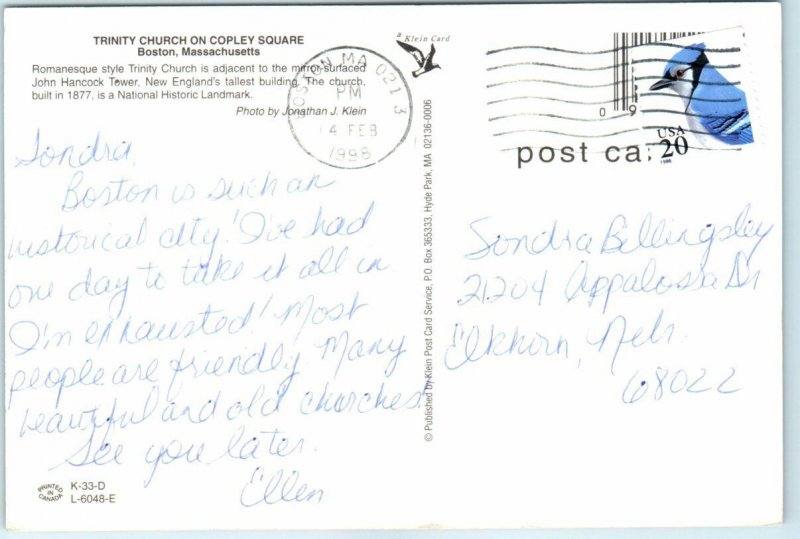 TRINITY CHURCH ON COPLEY SQUARE
Boston, Massachusetts
Romanesque style Trinity Church is adjacent to the mirror-surfaced
John Hancock Tower, New England's tallest building. The church,
built in 1877, is a National Historic Landmark.
Photo by Jonathan J. Klein
a Klein Card
BOSTON MA 021 3
PM
4 FEB
1998
09
USA
20
1996
post ca
Sondra,
Boston is such an
historical city! I've had
one day to take it all in
I'm exhausted! Most
people are friendly. Many
beautiful and old churches.
See you later.
Ellen
Sondra Billingsley
21204 Appaloosa Dr
Elkhorn, Nebr.
68022
© Published by Klein Post Card Service, P.O. Box 365333, Hyde Park, MA 02136-0006
PRINTED IN CANADA
K-33-D
L-6048-E